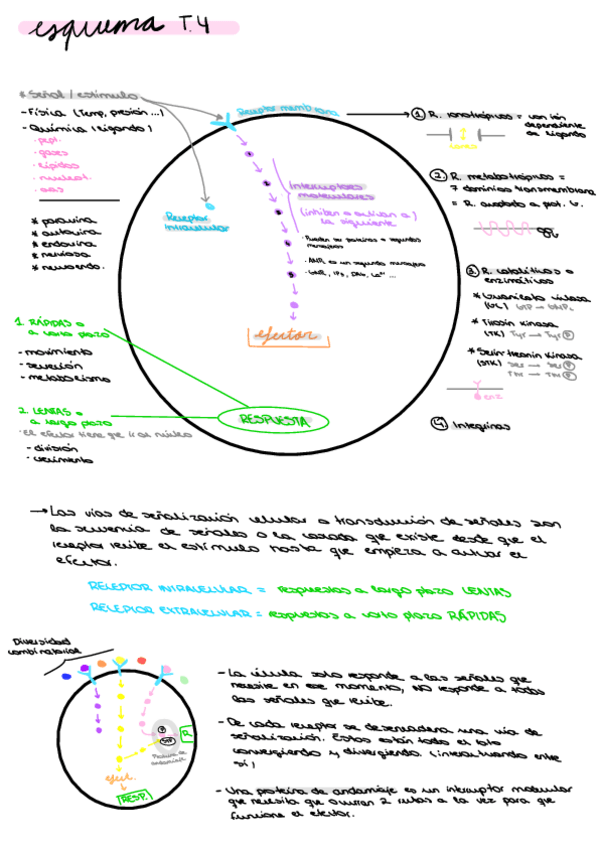 esquema T.4
* Señal / estímulo
- Física (Temp, presión...)
- Química (ligando)
* pept.
* gases
* lípidos
* nucleot.
* paracrina
* autocrina
* endocrina
* nerviosa
* neuroendo.
Receptor membrana
Receptor intracelular
Interruptores moleculares
(inhiben o activan a)
la siguiente
• Pueden ser proteínas o segundos
mensajeros
• AMPc es un segundo mensajero
• GMPc, IP3, DAG, Ca2+ ...
efector
RESPUESTA
1. RÁPIDAS o
a corto plazo
- movimiento
- secreción
- metabolismo
2. LENTAS o
a largo plazo
• El efector tiene que ir al núcleo
- división
- crecimiento
1. R. ionotrópicos = can ion
dependiente
de ligando
2. R. metabotrópicos =
7 dominios transmembrana
= R. acoplado a prot. G.
3. R. catalíticos o
enzimáticos
* Guanilato ciclasa
(GC) GTP → GMPc
* Tirosin kinasa
(TK) Tyr → Tyr P
* Serin treonin kinasa
(STK) Ser → Ser P
Thr → Thr P
enz
4. Integrinas
→ Las vías de señalización celular o transducción de señales son
la secuencia de señales o la cascada que existe desde que el
receptor recibe el estímulo hasta que empieza a actuar el
efector.
RECEPTOR INTRACELULAR = respuestas a largo plazo LENTAS
RECEPTOR EXTRACELULAR = respuestas a corto plazo RÁPIDAS
Diversidad
combinatorial
P
R
Proteína de
andamiaje
RESP.
- La célula solo responde a las señales que
necesite en ese momento, NO responde a todas
las señales que recibe.
- De cada receptor se desencadena una vía de
señalización. Estas están todo el rato
convergiendo y divergiendo (interactuando entre
sí)
- Una proteína de andamiaje es un interruptor molecular
que necesita que ocurran 2 rutas a la vez para que
funcione el efector.